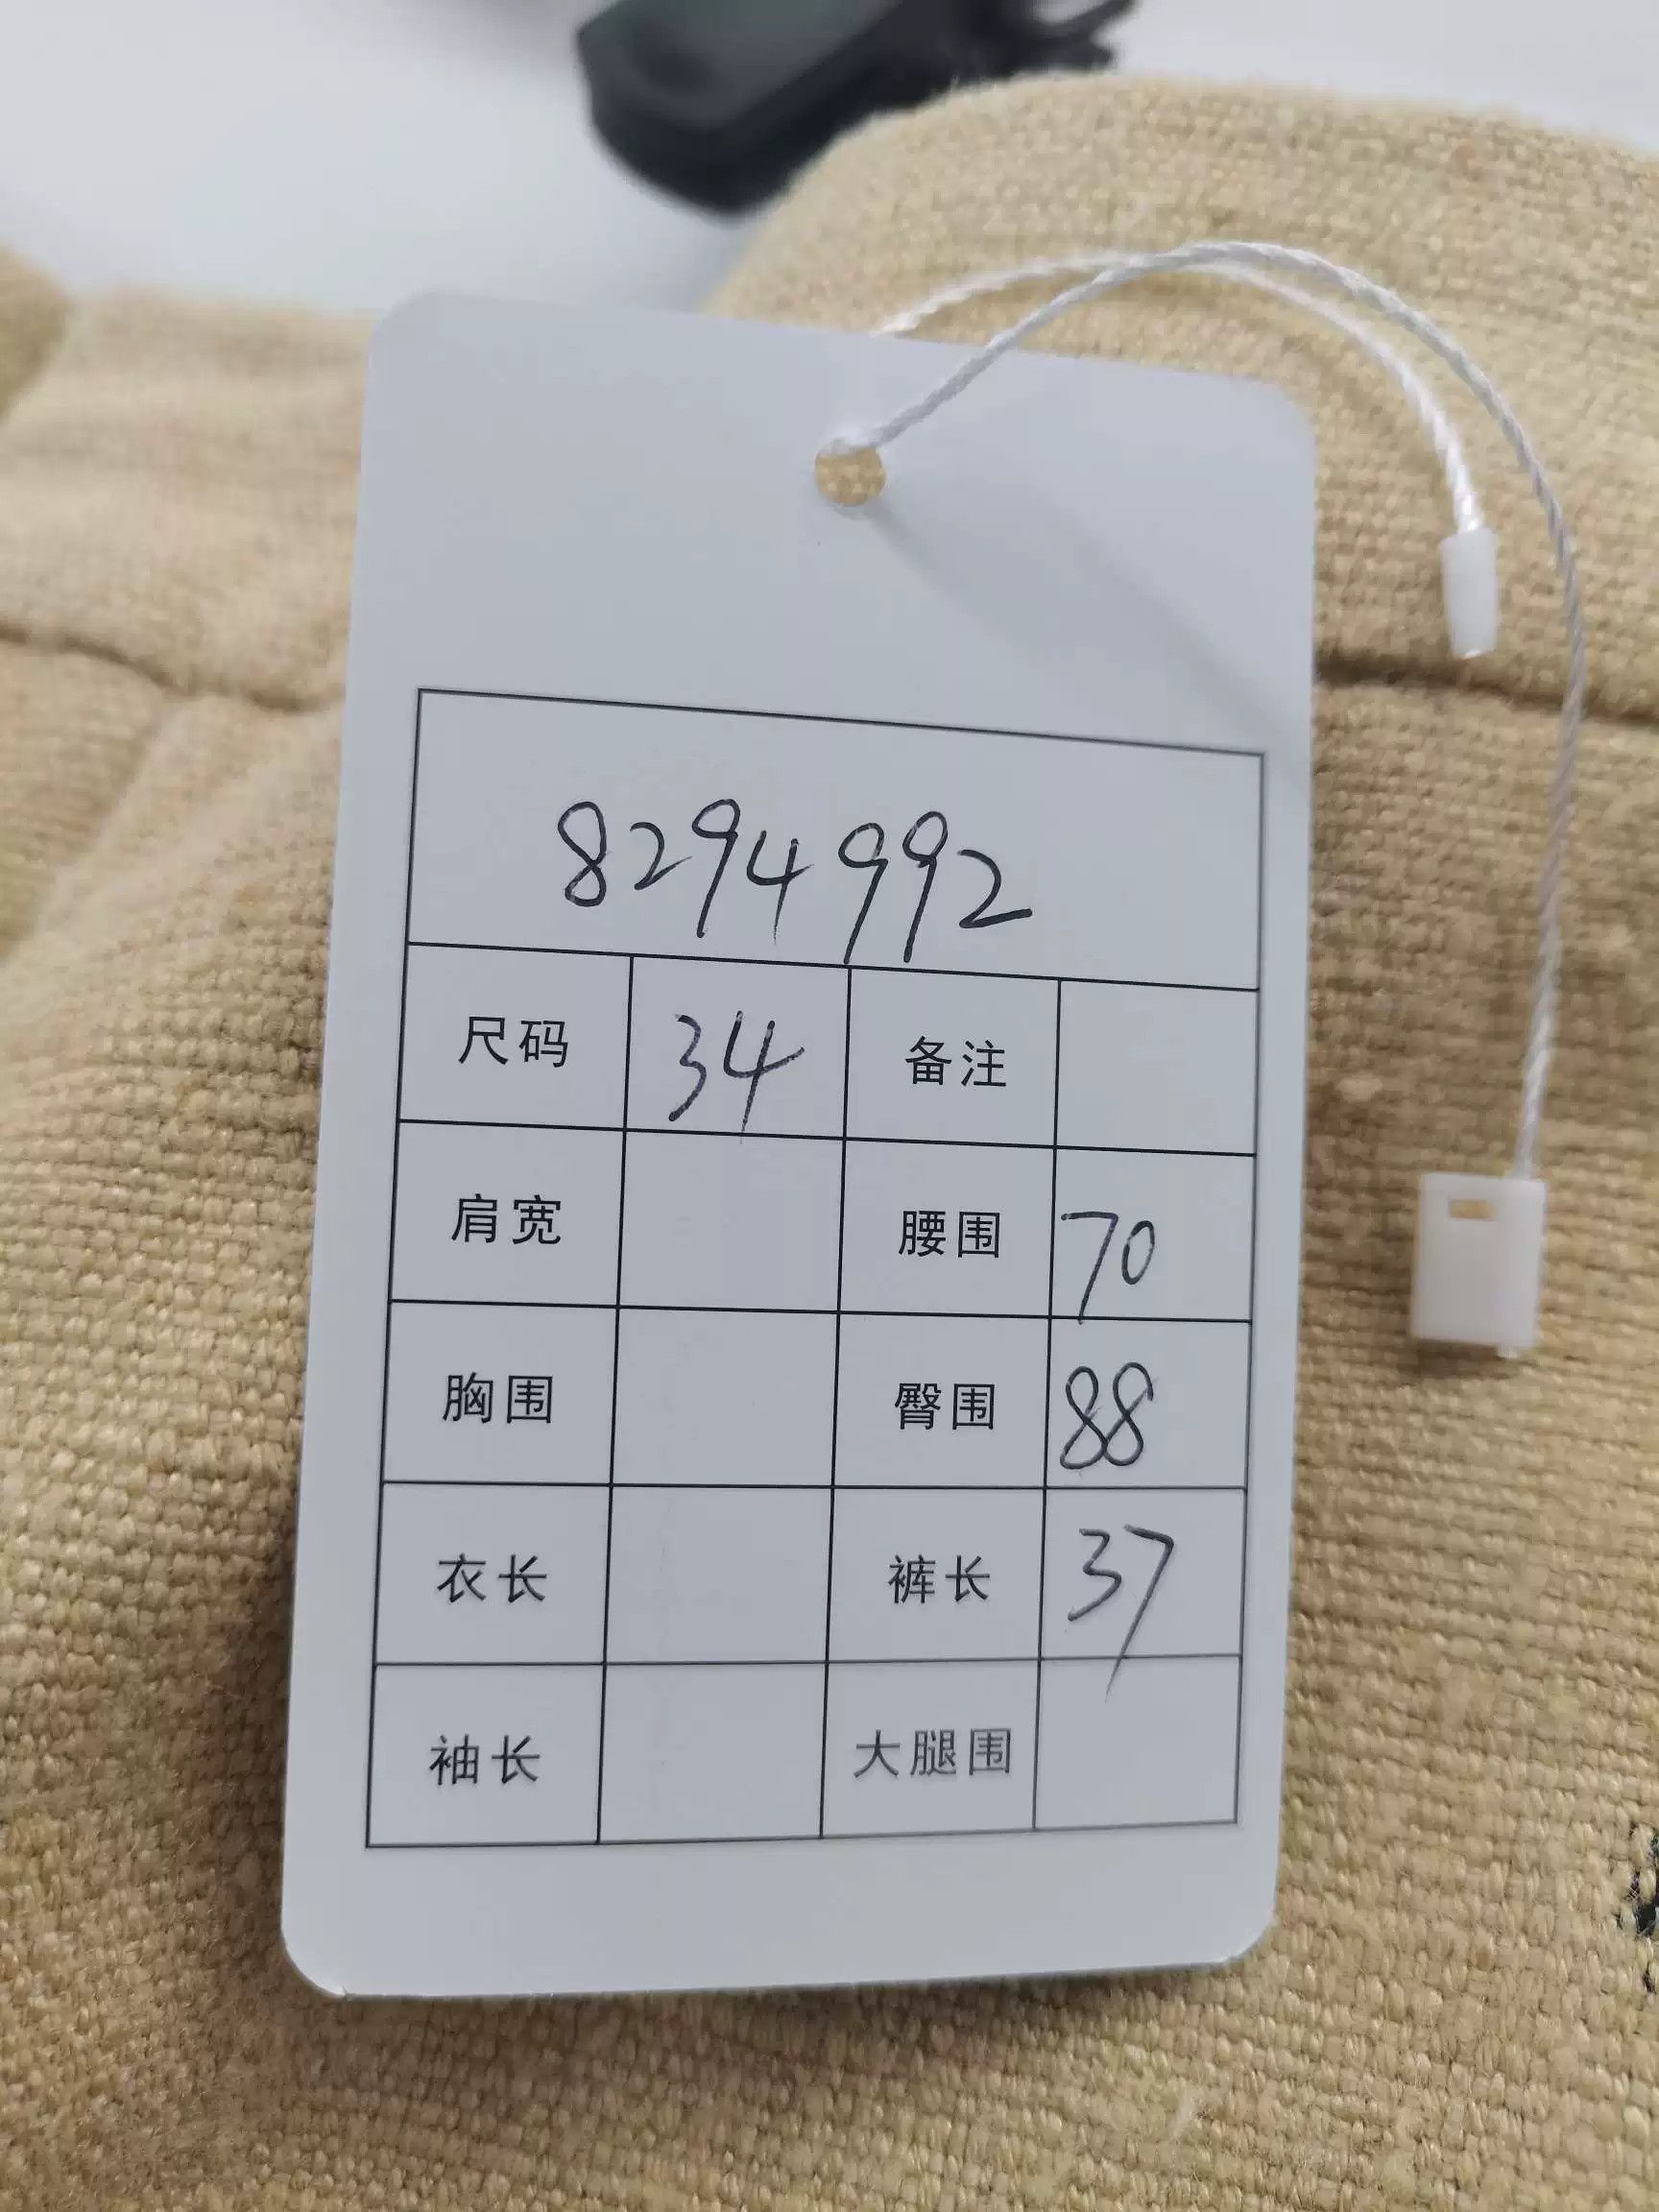 8294992
尺码 34 备注
肩宽 腰围 70
胸围 臀围 88
衣长 裤长 37
袖长 大腿围